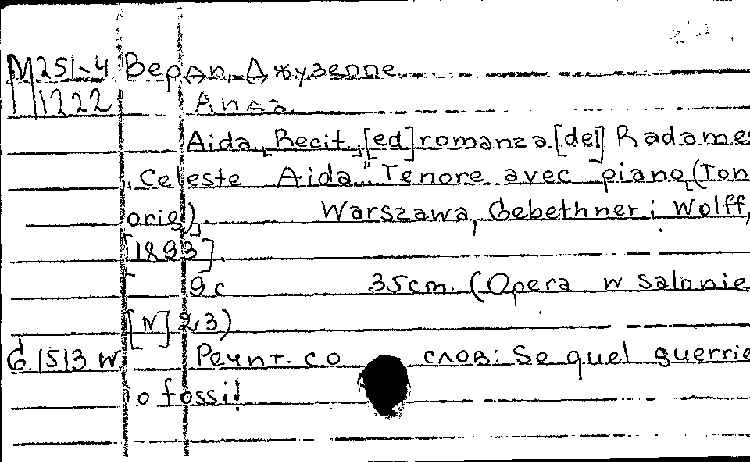 М251-4 Верди, Джузеппе.
1222 Аида.
Aida, Recit. [ed] romanza [del] Radame
"Celeste Aida". Tenore avec piano (Ton
orig). Warszawa, Gebethner i Wolff,
[1893].
9с 35cm. (Opera w salonie
[N] 23)
G 1513 W Речит. со слов: Se quel guerrie
ro fossi!